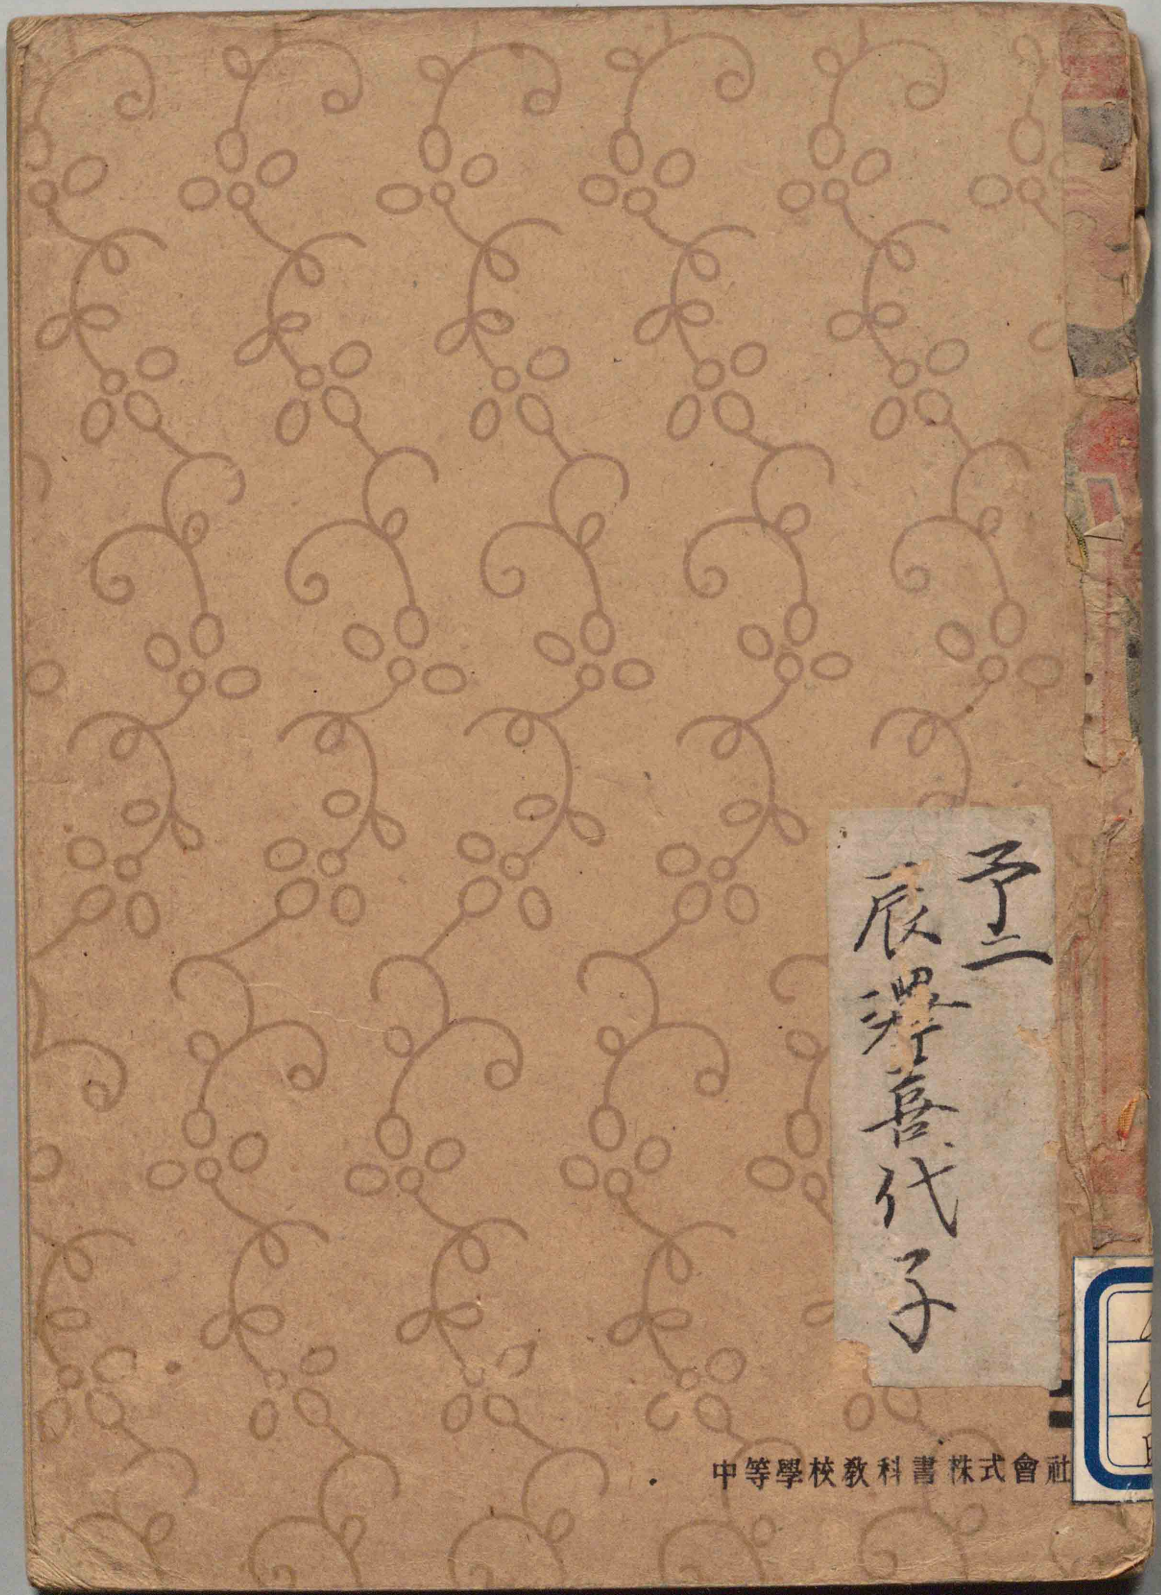 予二
辰澤喜代子
中等學校教科書株式會社